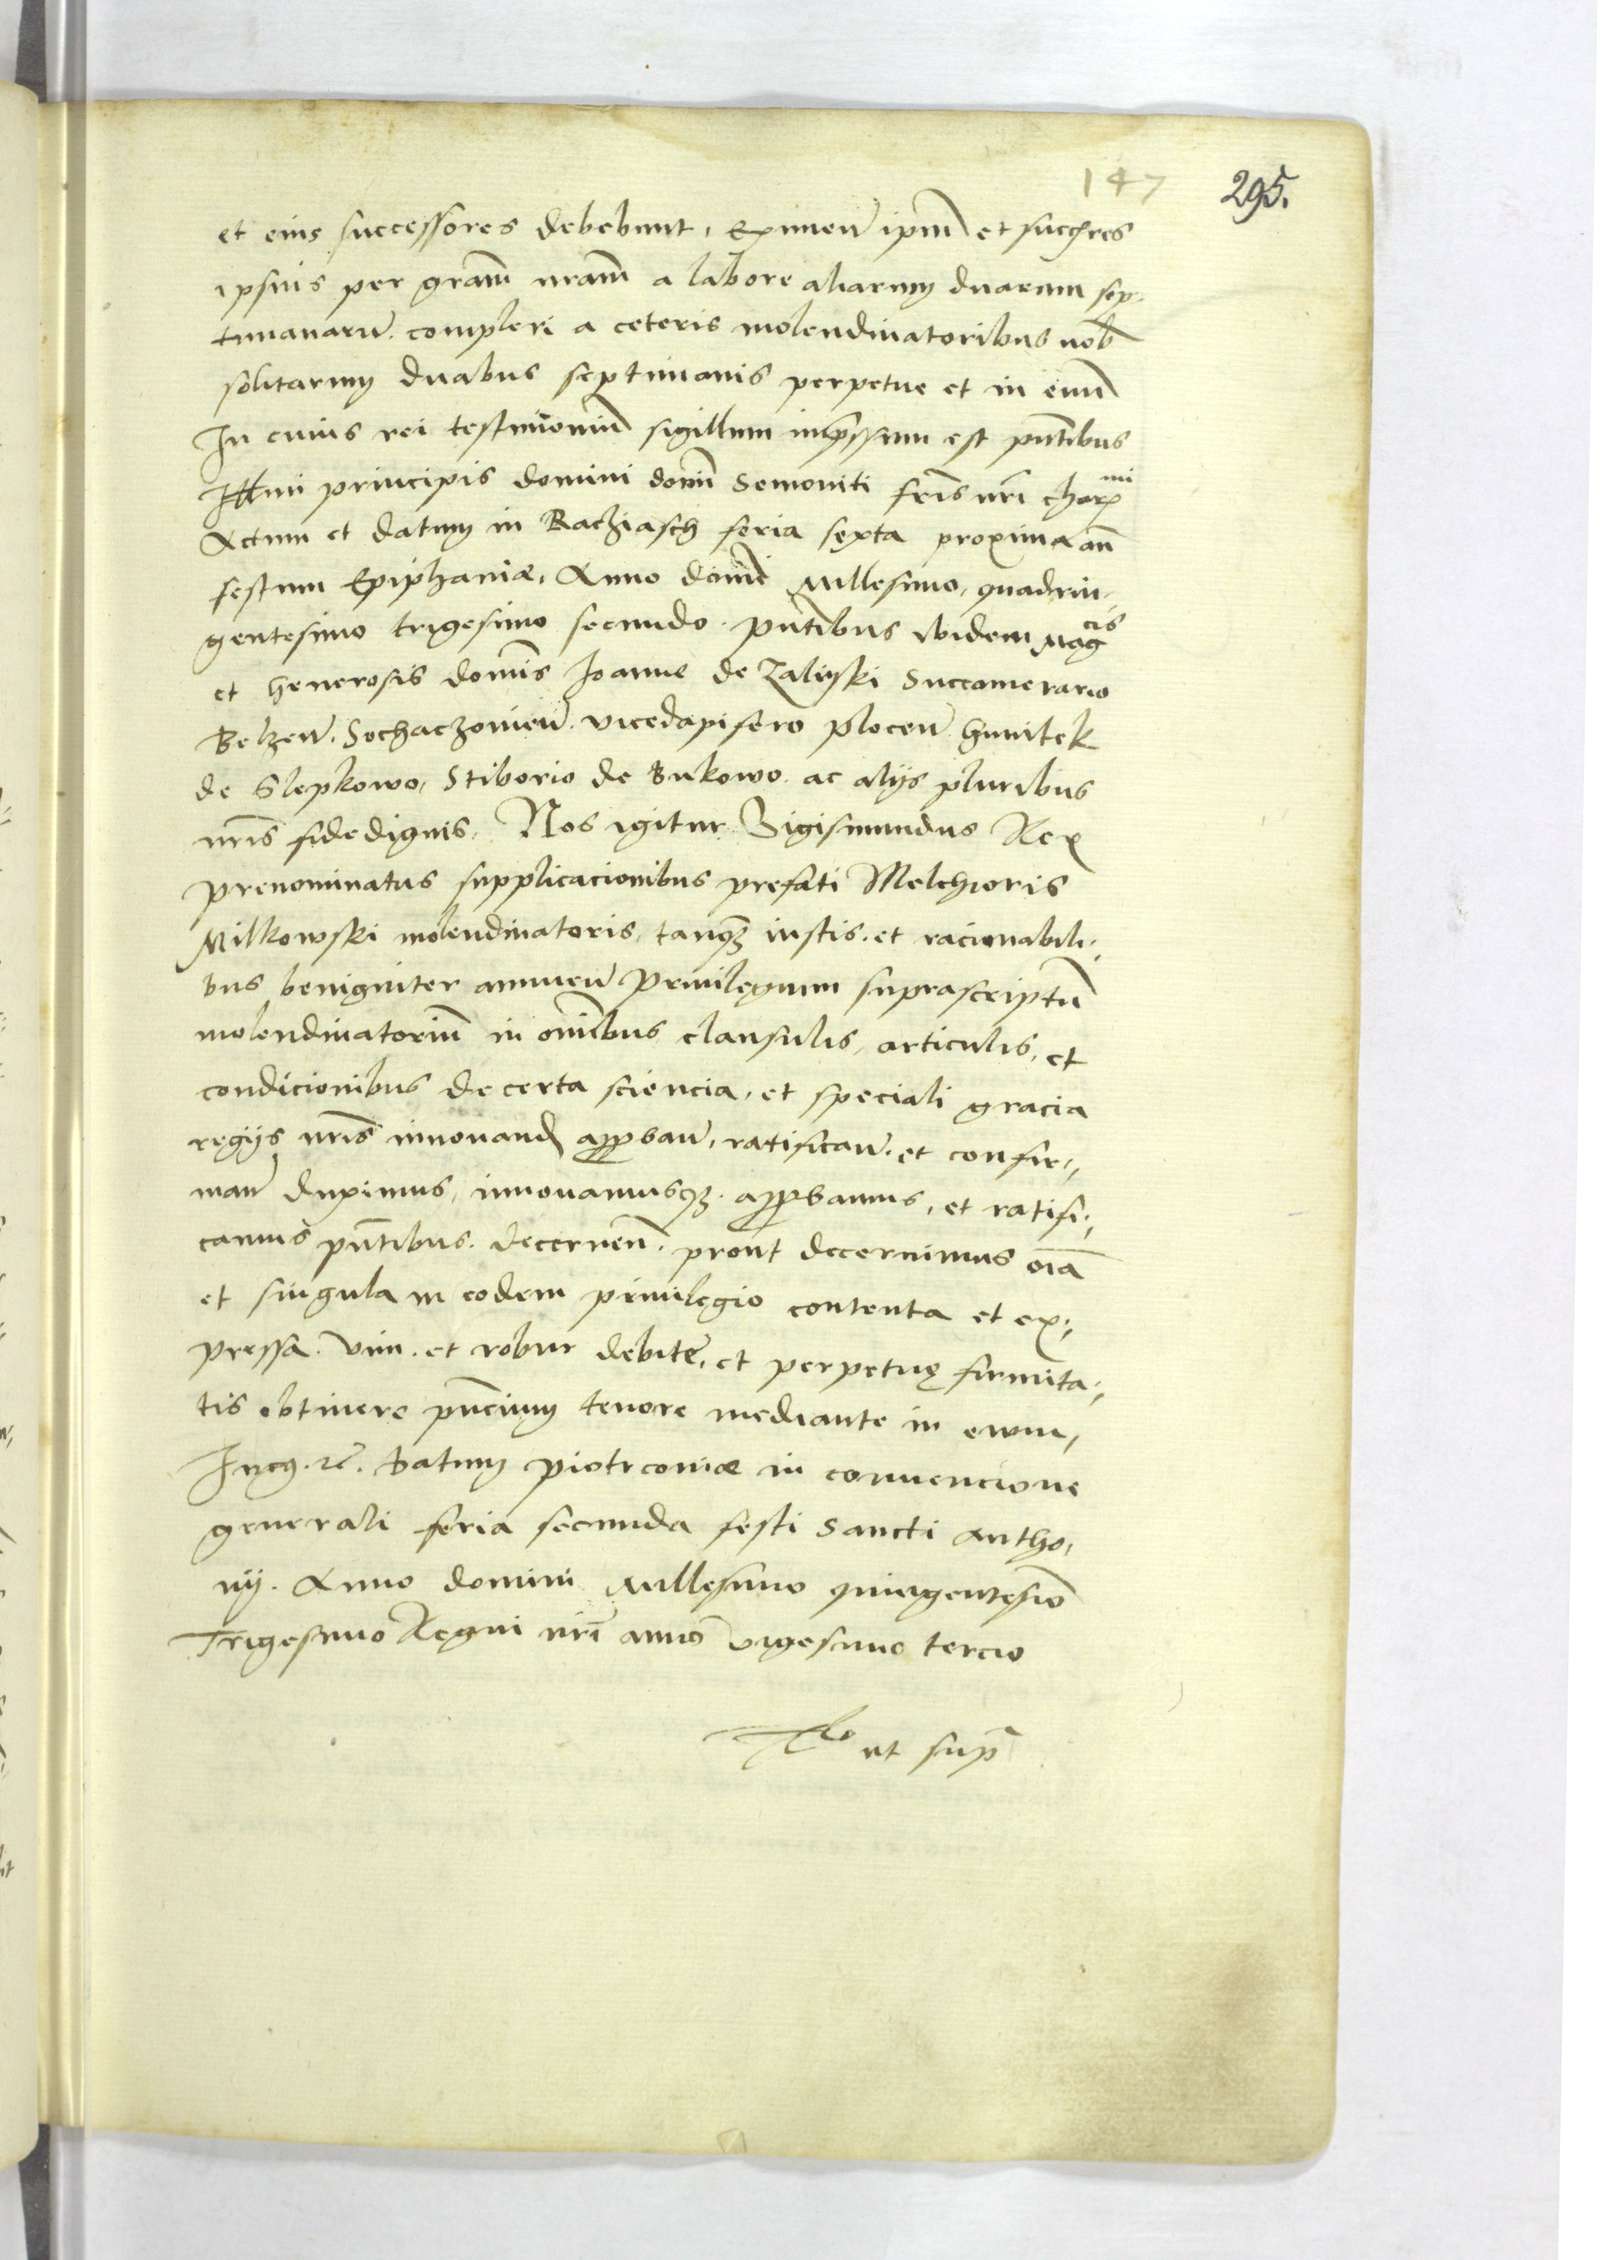 147 295.
et eius successores debebunt, Eximen̄ ipm̄ et succ̄res
ipsius per gram̄ nram̄ a labore aliarum duarum sep-
timanarū. compleri a ceteris molendinatoribus nob̄
solitarum duabus septimanis perpetue et in euū
In cuius rei testimoniū sigillum imp̄ssum est pn̄tibus
Illmi principis domini domī Semoviti fr̄is nr̄i char̄mi
Actum et datum in Rachiasch feria sexta proxima an̄
festum Epiphaniæ, Anno domī Millesimo, quadrin-
gentesimo trigesimo secundo. pn̄tibus ibidem Maḡcis
et Generosis domīs Joanne de Zaliski Succamerario
Belzen̄. Sochaczovien̄. vicedapifero Plocen̄ Hinitek
de Slepkowo, Stiborio de Bukowo. ac alijs pluribus
nr̄is fidedignis. Nos igitur Sigismundus Rex
prenominatus supplicacionibus prefati Melchioris
Milkowski molendinatoris, tanq̄ iustis. et racionabili-
bus benigniter annuen̄ Privilegium suprascriptū
molendinatoriū in om̄ibus clausulis, articulis, et
condicionibus de certa sciencia, et speciali gracia
regijs nr̄is innovand̄ approban̄, ratifican̄. et confir-
man̄ duximus, innovamusq̄. approbamus, et ratifi-
camus pn̄tibus. decernen̄. prout decernimus oīa
et singula in eodem privilegio contenta et ex-
pressa. vim. et robur debitę, et perpetuę firmita-
tis obtinere pn̄cium tenore mediante in ewm,
In cuj. rē. Datum Piotrconiæ in convencione
generali feria secunda festi Sancti Antho-
nij. Anno domini Millesimo quingentesīo
Trigesimo Regni nr̄i anno vigesimo tercio
Rlo ut sup̄